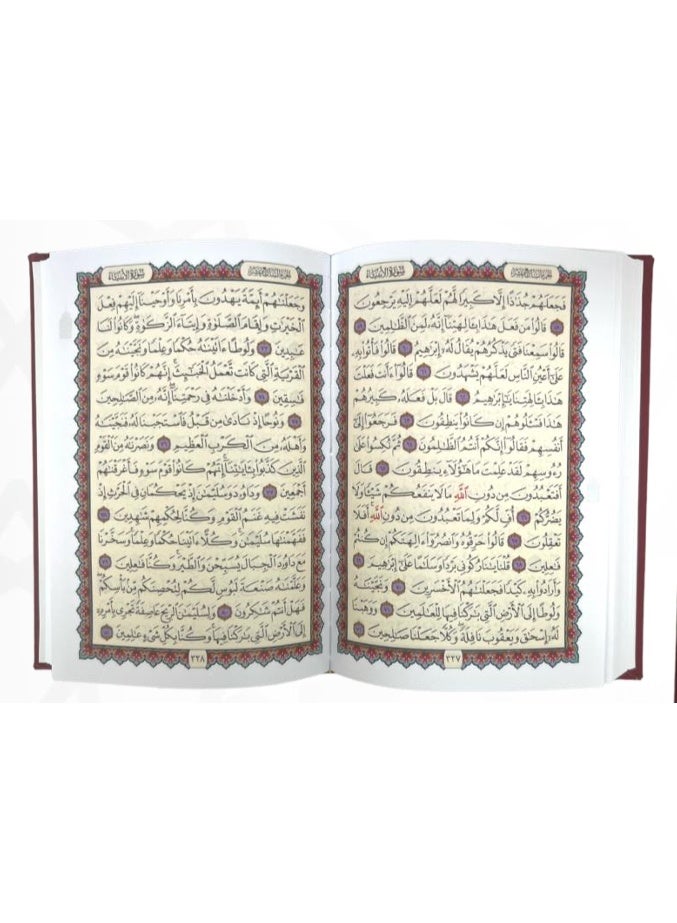 الجزء السابع عشر
سورة الأنبياء
فَجَعَلَهُمْ جُذَٰذًا إِلَّا كَبِيرًا لَّهُمْ لَعَلَّهُمْ إِلَيْهِ يَرْجِعُونَ
٥٨ قَالُوا۟ مَن فَعَلَ هَٰذَا بِـَٔالِهَتِنَآ إِنَّهُۥ لَمِنَ ٱلظَّٰلِمِينَ ٥٩
قَالُوا۟ سَمِعْنَا فَتًى يَذْكُرُهُمْ يُقَالُ لَهُۥٓ إِبْرَٰهِيمُ ٦٠ قَالُوا۟ فَأْتُوا۟ بِهِۦ
عَلَىٰٓ أَعْيُنِ ٱلنَّاسِ لَعَلَّهُمْ يَشْهَدُونَ ٦١ قَالُوٓا۟ ءَأَنتَ فَعَلْتَ
هَٰذَا بِـَٔالِهَتِنَا يَٰٓإِبْرَٰهِيمُ ٦٢ قَالَ بَلْ فَعَلَهُۥ كَبِيرُهُمْ
هَٰذَا فَسْـَٔلُوهُمْ إِن كَانُوا۟ يَنطِقُونَ ٦٣ فَرَجَعُوٓا۟ إِلَىٰٓ
أَنفُسِهِمْ فَقَالُوٓا۟ إِنَّكُمْ أَنتُمُ ٱلظَّٰلِمُونَ ٦٤ ثُمَّ نُكِسُوا۟ عَلَىٰ
رُءُوسِهِمْ لَقَدْ عَلِمْتَ مَا هَٰٓؤُلَآءِ يَنطِقُونَ ٦٥ قَالَ
أَفَتَعْبُدُونَ مِن دُونِ ٱللَّهِ مَا لَا يَنفَعُكُمْ شَيْـًٔا وَلَا
يَضُرُّكُمْ ٦٦ أُفٍّ لَّكُمْ وَلِمَا تَعْبُدُونَ مِن دُونِ ٱللَّهِ أَفَلَا
تَعْقِلُونَ ٦٧ قَالُوا۟ حَرِّقُوهُ وَٱنصُرُوٓا۟ ءَالِهَتَكُمْ إِن كُنتُمْ
فَٰعِلِينَ ٦٨ قُلْنَا يَٰنَارُ كُونِى بَرْدًا وَسَلَٰمًا عَلَىٰٓ إِبْرَٰهِيمَ ٦٩
وَأَرَادُوا۟ بِهِۦ كَيْدًا فَجَعَلْنَٰهُمُ ٱلْأَخْسَرِينَ ٧٠ وَنَجَّيْنَٰهُ
وَلُوطًا إِلَى ٱلْأَرْضِ ٱلَّتِى بَٰرَكْنَا فِيهَا لِلْعَٰلَمِينَ ٧١ وَوَهَبْنَا
لَهُۥٓ إِسْحَٰقَ وَيَعْقُوبَ نَافِلَةً وَكُلًّا جَعَلْنَا صَٰلِحِينَ ٧٢
٣٢٧
الجزء السابع عشر
سورة الأنبياء
وَجَعَلْنَٰهُمْ أَئِمَّةً يَهْدُونَ بِأَمْرِنَا وَأَوْحَيْنَآ إِلَيْهِمْ فِعْلَ
ٱلْخَيْرَٰتِ وَإِقَامَ ٱلصَّلَوٰةِ وَإِيتَآءَ ٱلزَّكَوٰةِ وَكَانُوا۟ لَنَا
عَٰبِدِينَ ٧٣ وَلُوطًا ءَاتَيْنَٰهُ حُكْمًا وَعِلْمًا وَنَجَّيْنَٰهُ مِنَ
ٱلْقَرْيَةِ ٱلَّتِى كَانَت تَّعْمَلُ ٱلْخَبَٰٓئِثَ إِنَّهُمْ كَانُوا۟ قَوْمَ سَوْءٍ
فَٰسِقِينَ ٧٤ وَأَدْخَلْنَٰهُ فِى رَحْمَتِنَآ إِنَّهُۥ مِنَ ٱلصَّٰلِحِينَ
٧٥ وَنُوحًا إِذْ نَادَىٰ مِن قَبْلُ فَٱسْتَجَبْنَا لَهُۥ فَنَجَّيْنَٰهُ
وَأَهْلَهُۥ مِنَ ٱلْكَرْبِ ٱلْعَظِيمِ ٧٦ وَنَصَرْنَٰهُ مِنَ ٱلْقَوْمِ
ٱلَّذِينَ كَذَّبُوا۟ بِـَٔايَٰتِنَآ إِنَّهُمْ كَانُوا۟ قَوْمَ سَوْءٍ فَأَغْرَقْنَٰهُمْ
أَجْمَعِينَ ٧٧ وَدَاوُۥدَ وَسُلَيْمَٰنَ إِذْ يَحْكُمَانِ فِى ٱلْحَرْثِ إِذْ
نَفَشَتْ فِيهِ غَنَمُ ٱلْقَوْمِ وَكُنَّا لِحُكْمِهِمْ شَٰهِدِينَ ٧٨
فَفَهَّمْنَٰهَا سُلَيْمَٰنَ وَكُلًّا ءَاتَيْنَا حُكْمًا وَعِلْمًا وَسَخَّرْنَا
مَعَ دَاوُۥدَ ٱلْجِبَالَ يُسَبِّحْنَ وَٱلطَّيْرَ وَكُنَّا فَٰعِلِينَ ٧٩
وَعَلَّمْنَٰهُ صَنْعَةَ لَبُوسٍ لَّكُمْ لِتُحْصِنَكُم مِّنۢ بَأْسِكُمْ
فَهَلْ أَنتُمْ شَٰكِرُونَ ٨٠ وَلِسُلَيْمَٰنَ ٱلرِّيحَ عَاصِفَةً تَجْرِى بِأَمْرِهِۦٓ
إِلَى ٱلْأَرْضِ ٱلَّتِى بَٰرَكْنَا فِيهَا وَكُنَّا بِكُلِّ شَىْءٍ عَٰلِمِينَ ٨١
٣٢٨